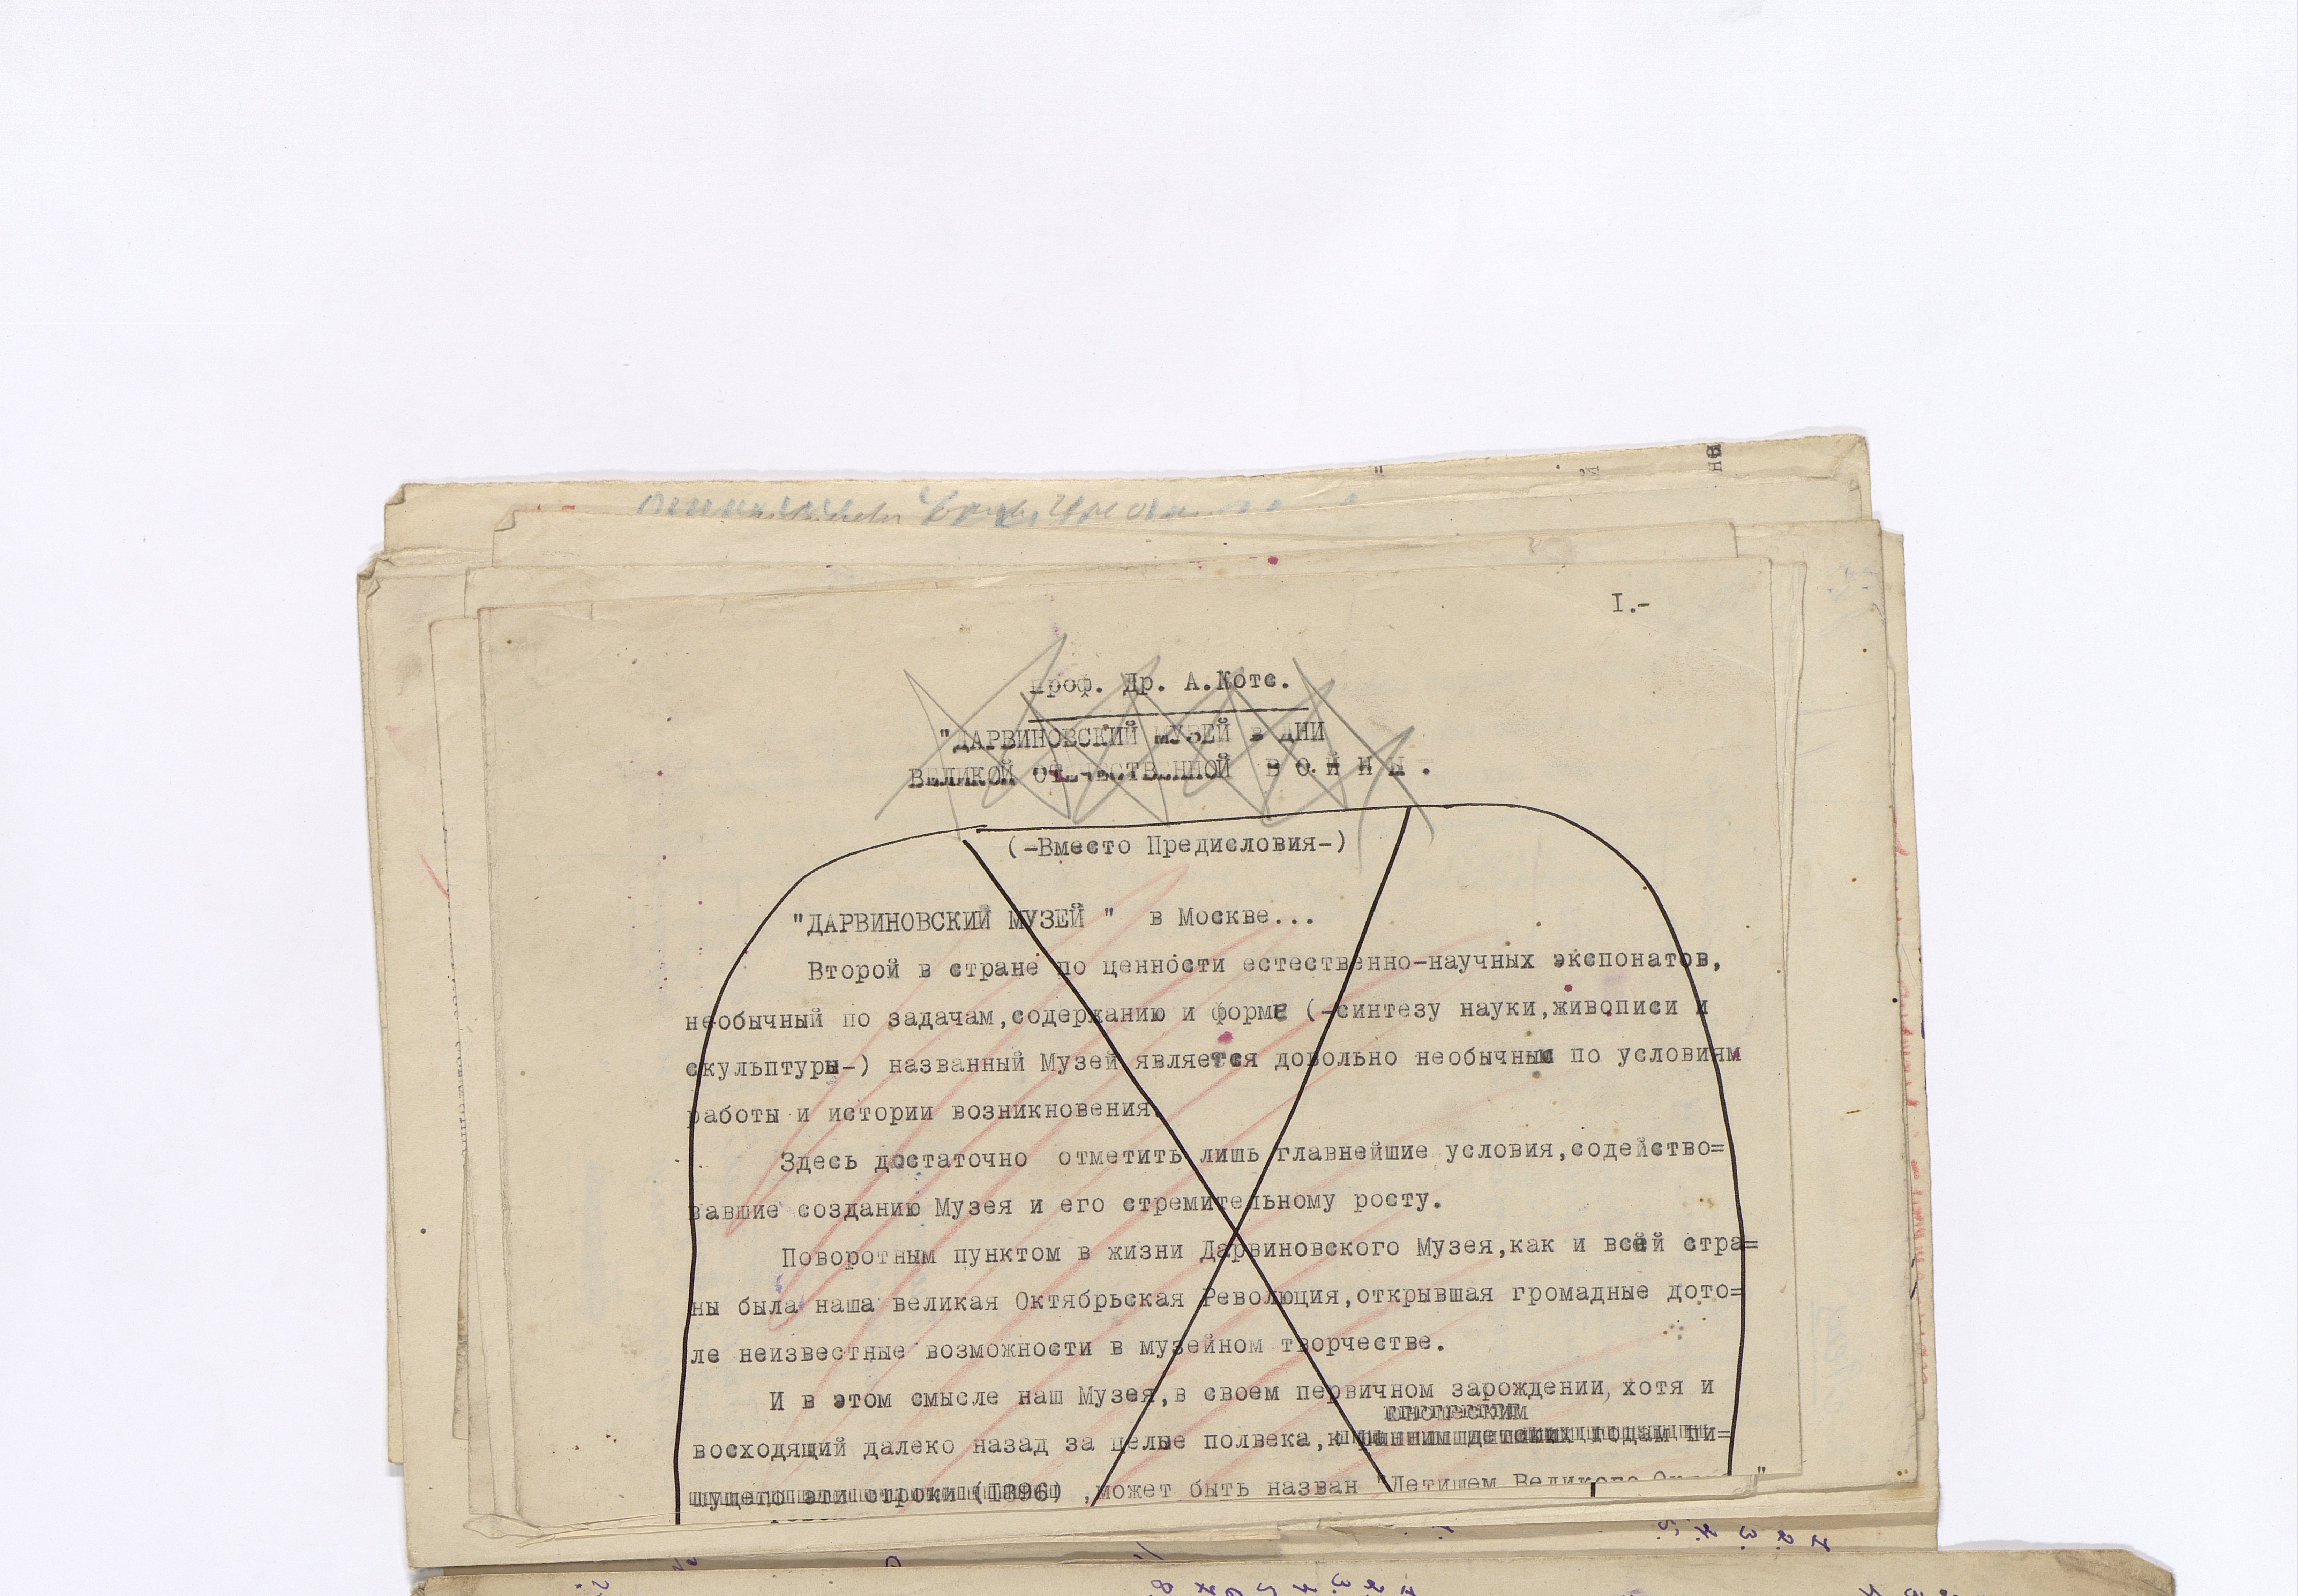 I.-
Проф. Др. А.Котс.
"ДАРВИНОВСКИЙ МУЗЕЙ в ДНИ
ВЕЛИКОЙ ОТЕЧЕСТВЕННОЙ В О Й Н Ы .
(-Вместо Предисловия-)
"ДАРВИНОВСКИЙ МУЗЕЙ " в Москве...
Второй в стране по ценности естественно-научных экспонатов,
необычный по задачам,содержанию и форме (-синтезу науки,живописи и
скульптуры-) названный Музей является довольно необычным по условиям
работы и истории возникновения.
Здесь достаточно отметить лишь главнейшие условия,содейство=
вавшие созданию Музея и его стремительному росту.
Поворотным пунктом в жизни Дарвиновского Музея,как и всей стра=
ны была наша великая Октябрьская Революция,открывшая громадные дото=
ле неизвестные возможности в музейном творчестве.
И в этом смысле наш Музея,в своем первичном зарождении, хотя и
юношеским
восходящий далеко назад за целые полвека,к ранним детским годам пи=
шущего эти строки (1896) ,может быть назван "Детищем Великого